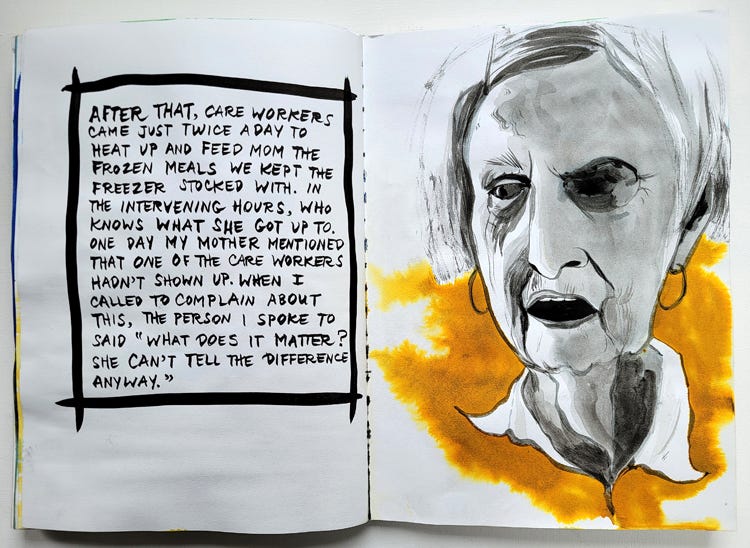 AFTER THAT, CARE WORKERS
CAME JUST TWICE A DAY TO
HEAT UP AND FEED MOM THE
FROZEN MEALS WE KEPT THE
FREEZER STOCKED WITH. IN
THE INTERVENING HOURS, WHO
KNOWS WHAT SHE GOT UP TO.
ONE DAY MY MOTHER MENTIONED
THAT ONE OF THE CARE WORKERS
HADN'T SHOWN UP. WHEN I
CALLED TO COMPLAIN ABOUT
THIS, THE PERSON I SPOKE TO
SAID "WHAT DOES IT MATTER?
SHE CAN'T TELL THE DIFFERENCE
ANYWAY."